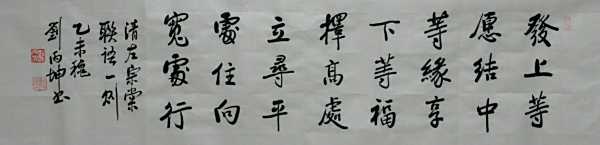 發上等
愿结中
等緣享
下等福
擇高處
立尋平
處住向
寬處行
清左宗棠
聯語一则
乙未穐
劉丙坤书